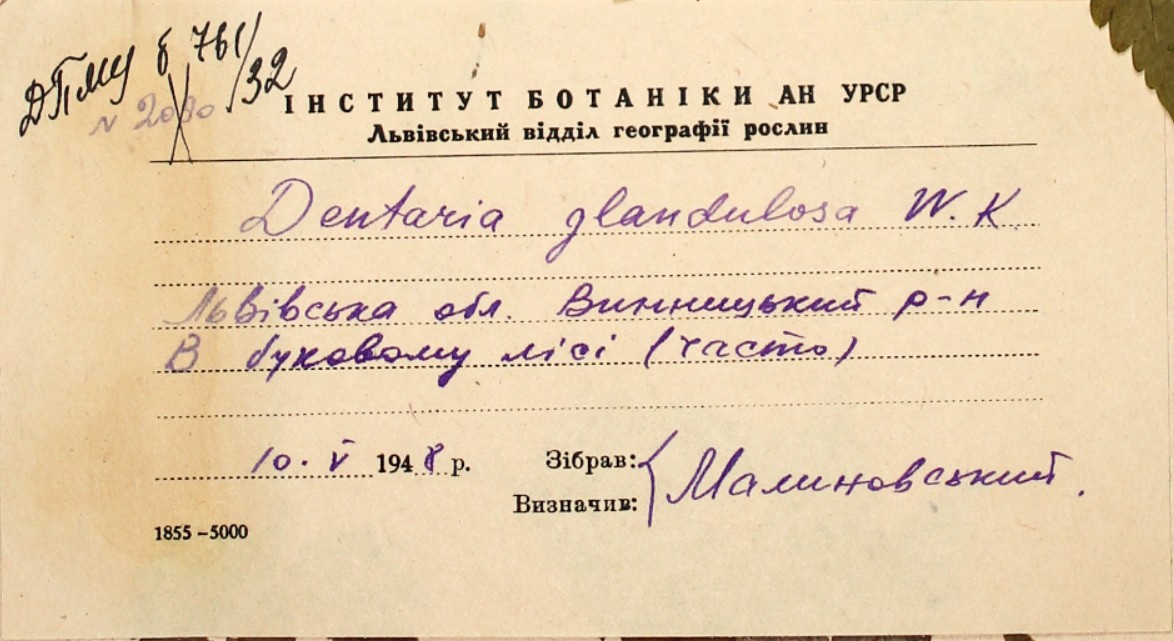 ДПМУ б 761/32
N 2080
ІНСТИТУТ БОТАНІКИ АН УРСР
Львівський відділ географії рослин
Dentaria glandulosa W. K.
Львівська обл. Винницький р-н
В буковому лісі (часто)
10. V 1948 р.
Зібрав:
Визначив:
Малиновський.
1855-5000